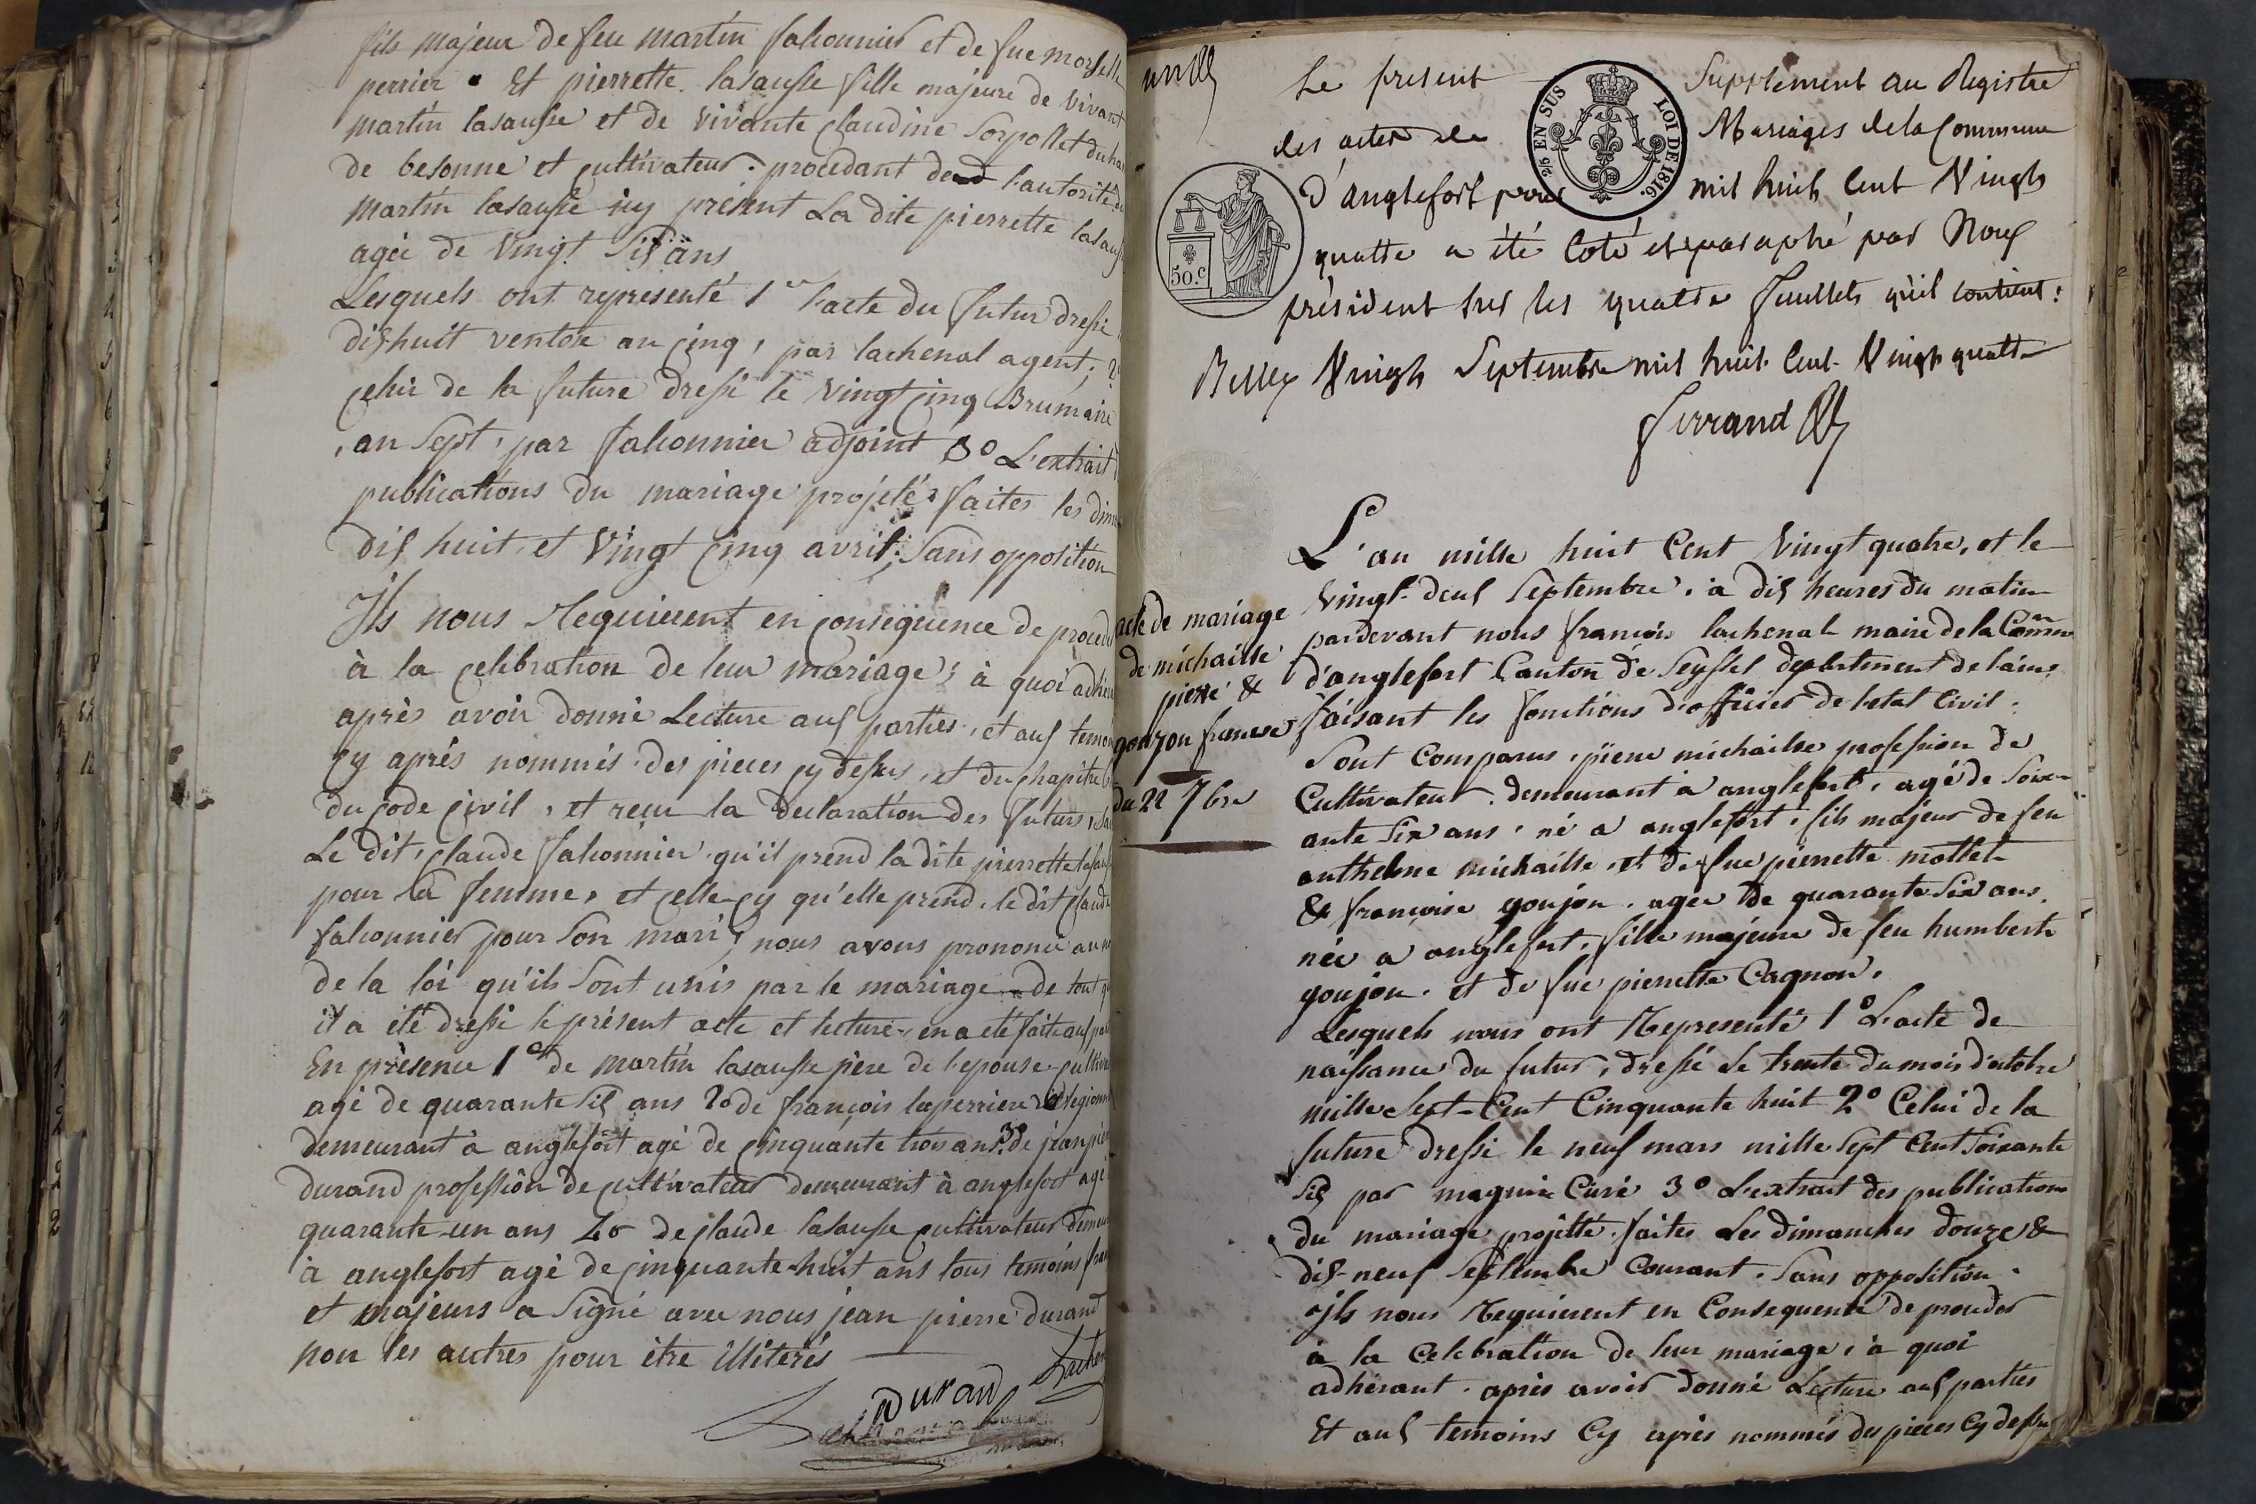 fils majeur de feu martin falconnier et de fue
perrier Et pierrette lasausse fille majeure de vivant
martin lasausse et de vivante claudine Sorpollet du
de besonne et cultivateur. procedant de l'autorité
martin lasausse icy présent La dite pierrette
agée de vingt Six ans
Lesquels ont représenté 1er l'acte du futur dressé
dixhuit ventose an cinq, par lachenal agent, 2
celui de la future dressé le vingt cinq Brumaire
an sept, par falconnier adjoint 3o L'extrait
publications du mariage projeté faites les
dix huit et Vingt cinq avril, Sans opposition
Ils nous Requierent en consequence de
à la celebration de leur mariage; à quoi
après avoir donné Lecture aux parties, et aux
cy après nommés des pieces cy dessus, et du chapitre
du code civil, et recu la declaration des futurs,
Le dit, claude falconnier qu'il prend la dite pierrette
pour sa femme, et celle-cy qu'elle prend le dit Claude
falconnier pour Son mari; nous avons prononcé au
de la loi qu'ils Sont unis par le mariage de tout
il a été dressé le présent acte et lecture en a eté faite aux
En présence 1er de martin lasausse père de l'epouse
agé de quarante Six ans 2o de françois laperriere
demeurant à anglefort agé de cinquante trois ans 3o de jean
durand profession de cultivateur demeurant à anglefort agé
quarante-un ans 4o de claude lasausse cultivateur
à anglefort agé de cinquante-huit ans tous temoins
et majeurs a Signé avec nous jean pierre durand
non les autres pour être illiterés
Durand
Le present Supplement au Registre
2/5 EN SUS LOI DE 1816.
des actes de Mariages de la Commune
d'anglefort pour mil huit Cent Vingt
quatre a été Coté et paraphé par Nous
50.c
président sur les quatre feuillets qu'il contient:
Belley Vingt Septembre mil huit Cent Vingt quatre
Ferrand
L'an mille huit Cent Vingt quatre, et le
Vingt-deux Septembre, à dix heures du matin
pardevant nous françois lachenal maire de la Comm
d'anglefort Canton de Seyssel departement de l'ain,
faisant les fonctions d'officier de l'etat Civil.
acte de mariage
de michaille
pierre &
goujon francoise
du 22 7bre
Sont Comparus, pierre michaille profession de
Cultivateur demeurant à anglefort, agé de Soix
ante Six ans, né a anglefort, fils majeur de feu
anthelme michaille, et de fue pierrette mollet
& françoise goujon, agée de quarante Six ans
née a anglefort, fille majeure de feu humbert
goujon, et de fue pierrette Cagnon,
Lesquels nous ont Représenté 1o L'acte de
naissance du futur, dressé le trente du mois d'octobre
mille Sept-Cent Cinquante huit 2o Celui de la
future dressé le neuf mars mille Sept Cent Soixante
dix par Curé 3o L'extrait des publications
du mariage projetté faites Les dimanches douze &
dix-neuf Septembre Courant. Sans opposition.
ils nous Requierent en Consequence de proceder
à la Celebration de leur mariage, à quoi
adhérant, après avoir donné Lecture aux parties
Et aux temoins Cy après nommés des pieces Cy dessus